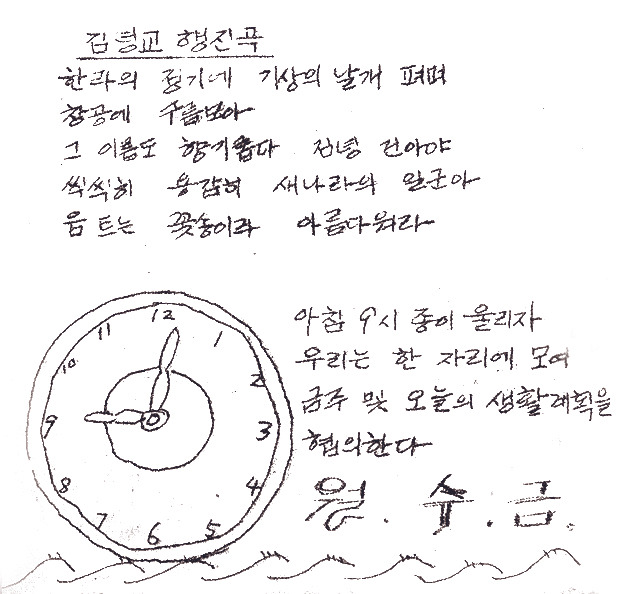 김녕교 행진곡
한라의 정기네 기상의 날개 펴며
창공에
그 이름도 향기롭다 김녕 건아야
씩씩히 용감히 새나라의 일군아
움트는 꽃송이라 아름다워라
12
11 1
10 2
9 3
8 4
7 6 5
아침 9시 종이 울리자
우리는 한 자리에 모여
금주 및 오늘의 생활계획을
협의한다
월. 수. 금.